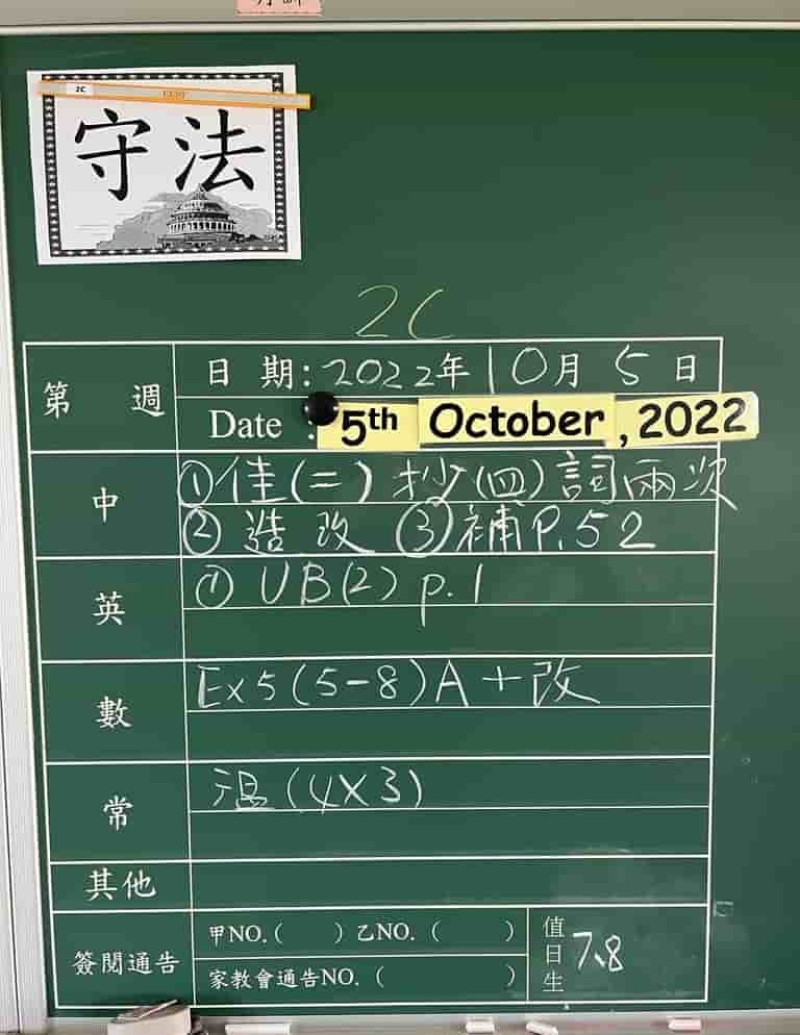 2C
守法
2C
第 週
日 期：2022年10月5日
Date : 5th October, 2022
中
①佳(二) 抄(四)詞兩次
② 造 改 ③補P.52
英
① UB(2) p.1
數
Ex5(5-8)A+改
常
温(4X3)
其他
簽閱通告
甲NO.( ) 乙NO.( )
家教會通告NO.( )
值日生
7、8